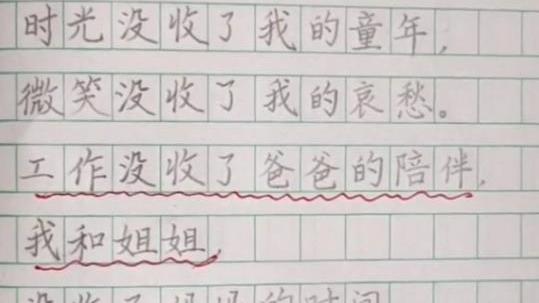 时光没收了我的童年，
微笑没收了我的哀愁。
工作没收了爸爸的陪伴，
我和姐姐，
没收了妈妈的时间